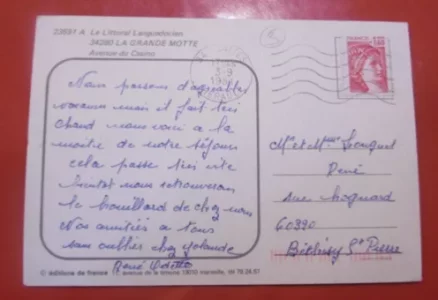 23651 A Le Littoral Languedocien
34280 LA GRANDE MOTTE
Avenue du Casino
FRANCE
3-9
Nous passons d'agréables
vacances mais il fait très
chaud nous voici a la
moitié de notre séjour
cela passe très vite
bientot nous retrouverons
le brouillard de chez nous
Nos amitiés a tous
sans oublier chez yolande
René Odette
Mr et Mme
René
rue
60320
Béthisy St Pierre
© éditions de france
marseille